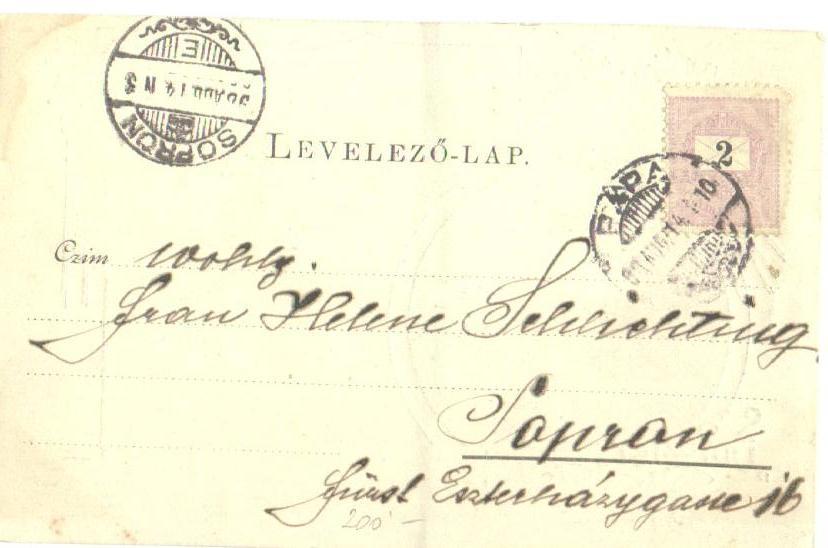 SOPRON
E
LEVELEZŐ-LAP.
2
PÁPA
Czim Wohlg.
Frau Helene Schlichting
Sopron
Fürst Eszterházygasse 16
200 -